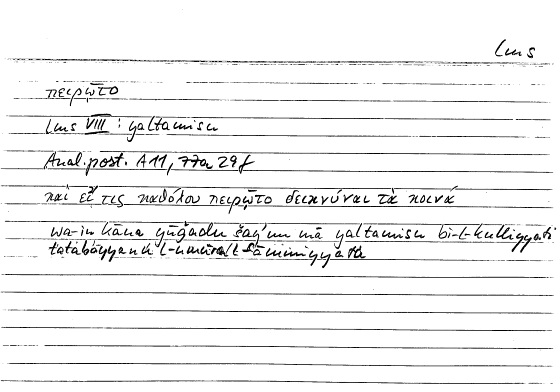 lms
πειρῷτο
lms VIII : yaltamisu
Anal. post. A 11, 77a 29f
καὶ εἴ τις καθόλου πειρῷτο δεικνύναι τὰ κοινά
wa-in kāna yūǧadu šayʾun mā yaltamisu bi-l-kulliyyati
l-umūra l-ʿāmmiyyata